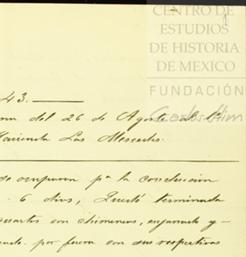 CENTRO DE
ESTUDIOS
DE HISTORIA
DE MEXICO
FUNDACIÓN
Carlos Slim
43.
del 26 de Agosto
Hacienda Las
se ocuparon pª la conclucion
6 dias, Quedó terminada
cuartos con chimenea, enjarrado y
por fuera con sus respectivas